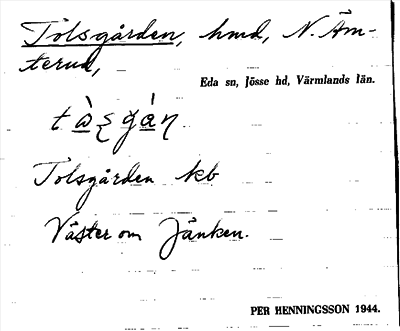 Tolsgården, hmd, N. Äm-
terud,
Eda sn, Jösse hd, Värmlands län.
Tolsgården kb
Väster om Jänken.
PER HENNINGSSON 1944.